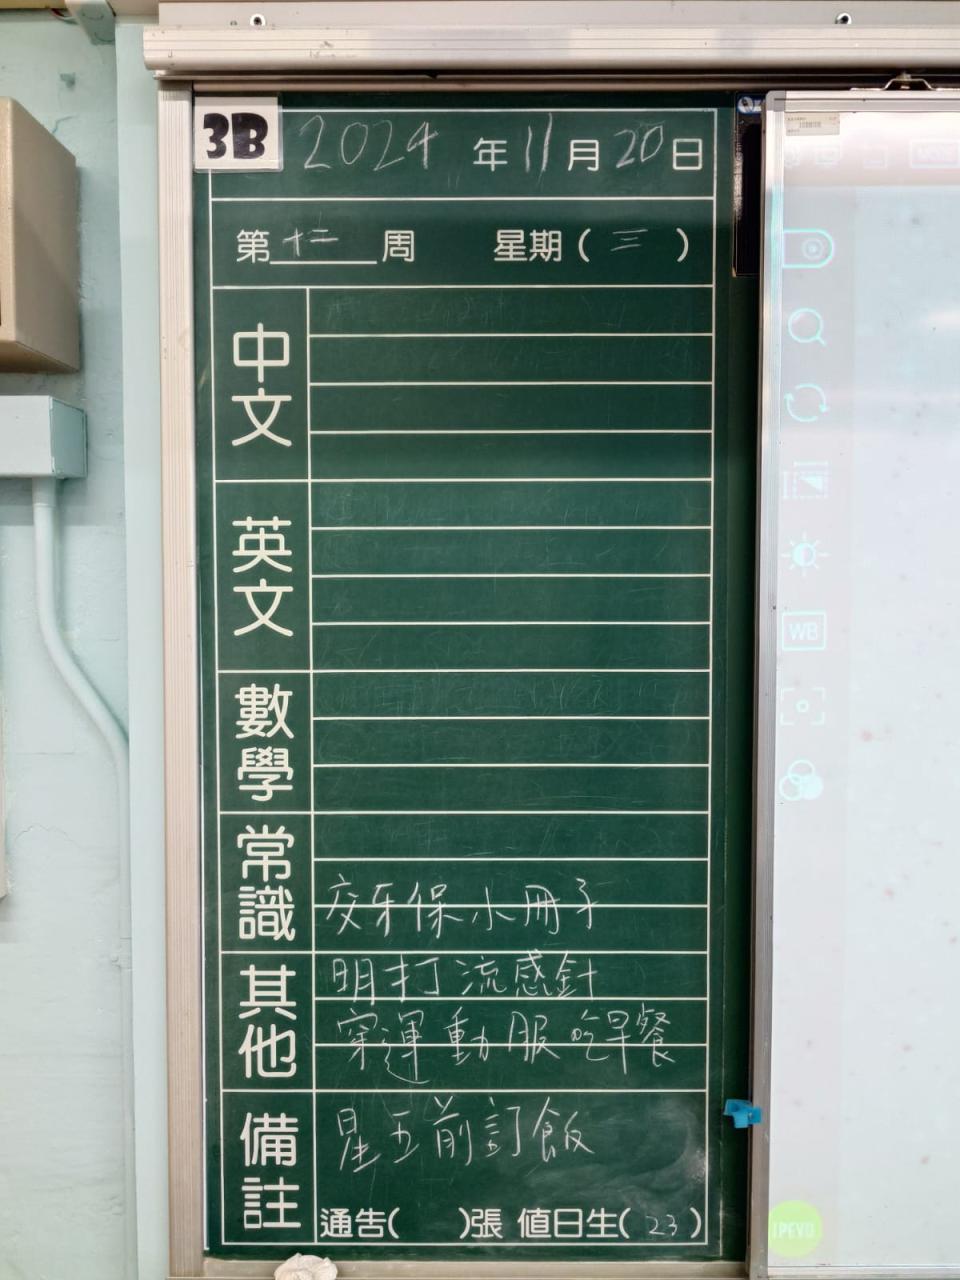 3B 2024年11月20日
第十二周 星期(三)
中文
英文
數學
常識
交牙保小冊子
其他
明打流感針
穿運動服吃早餐
備註
星五前訂飯
通告( )張 值日生(23)
WB
IPEVO